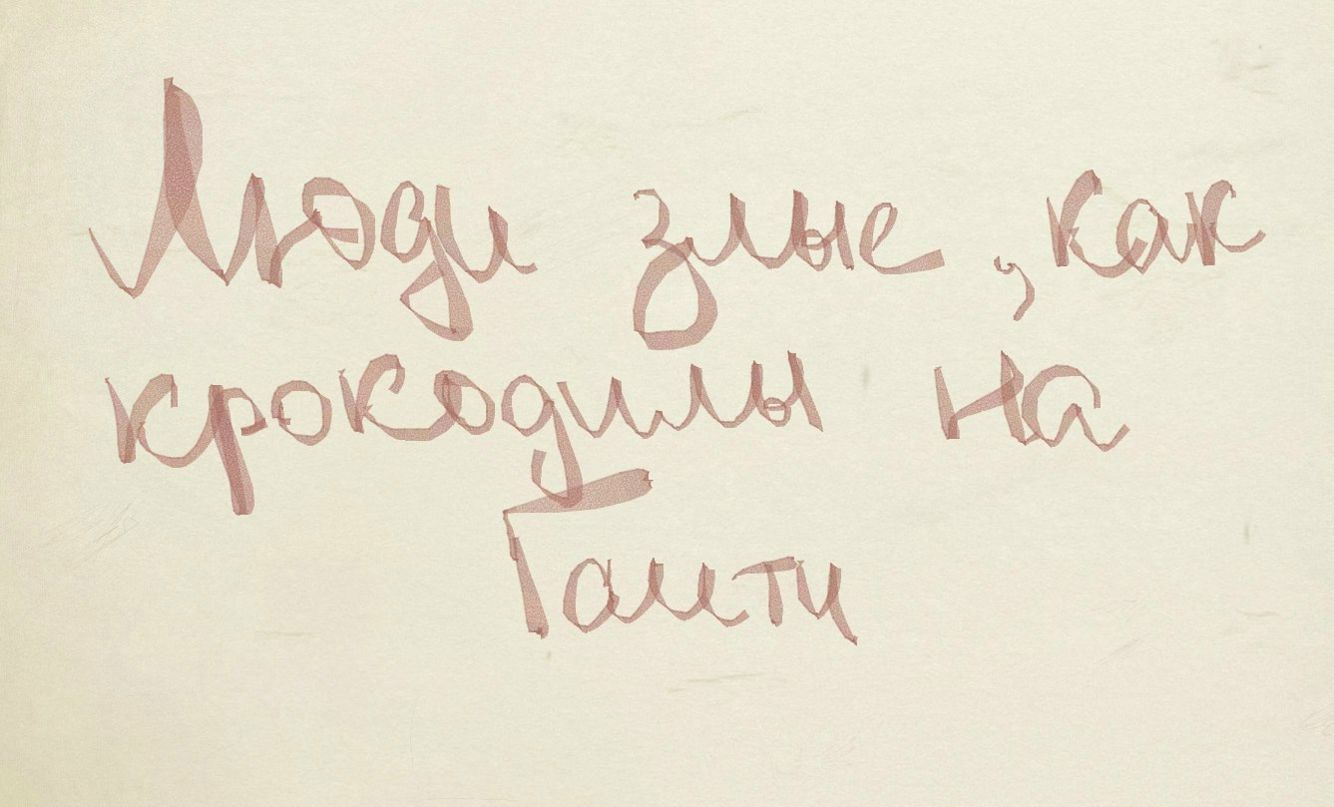 Люди злые, как
крокодилы на
Гаити